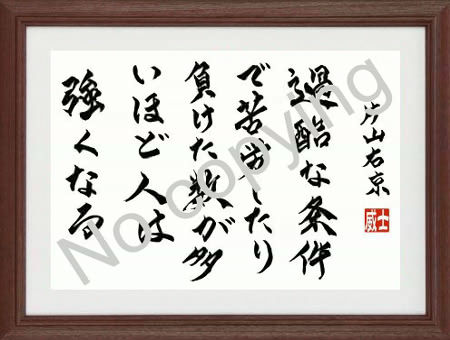 片山右京
過酷な条件
で苦労したり
負けた数が多
いほど人は
強くなる
威士
No copying